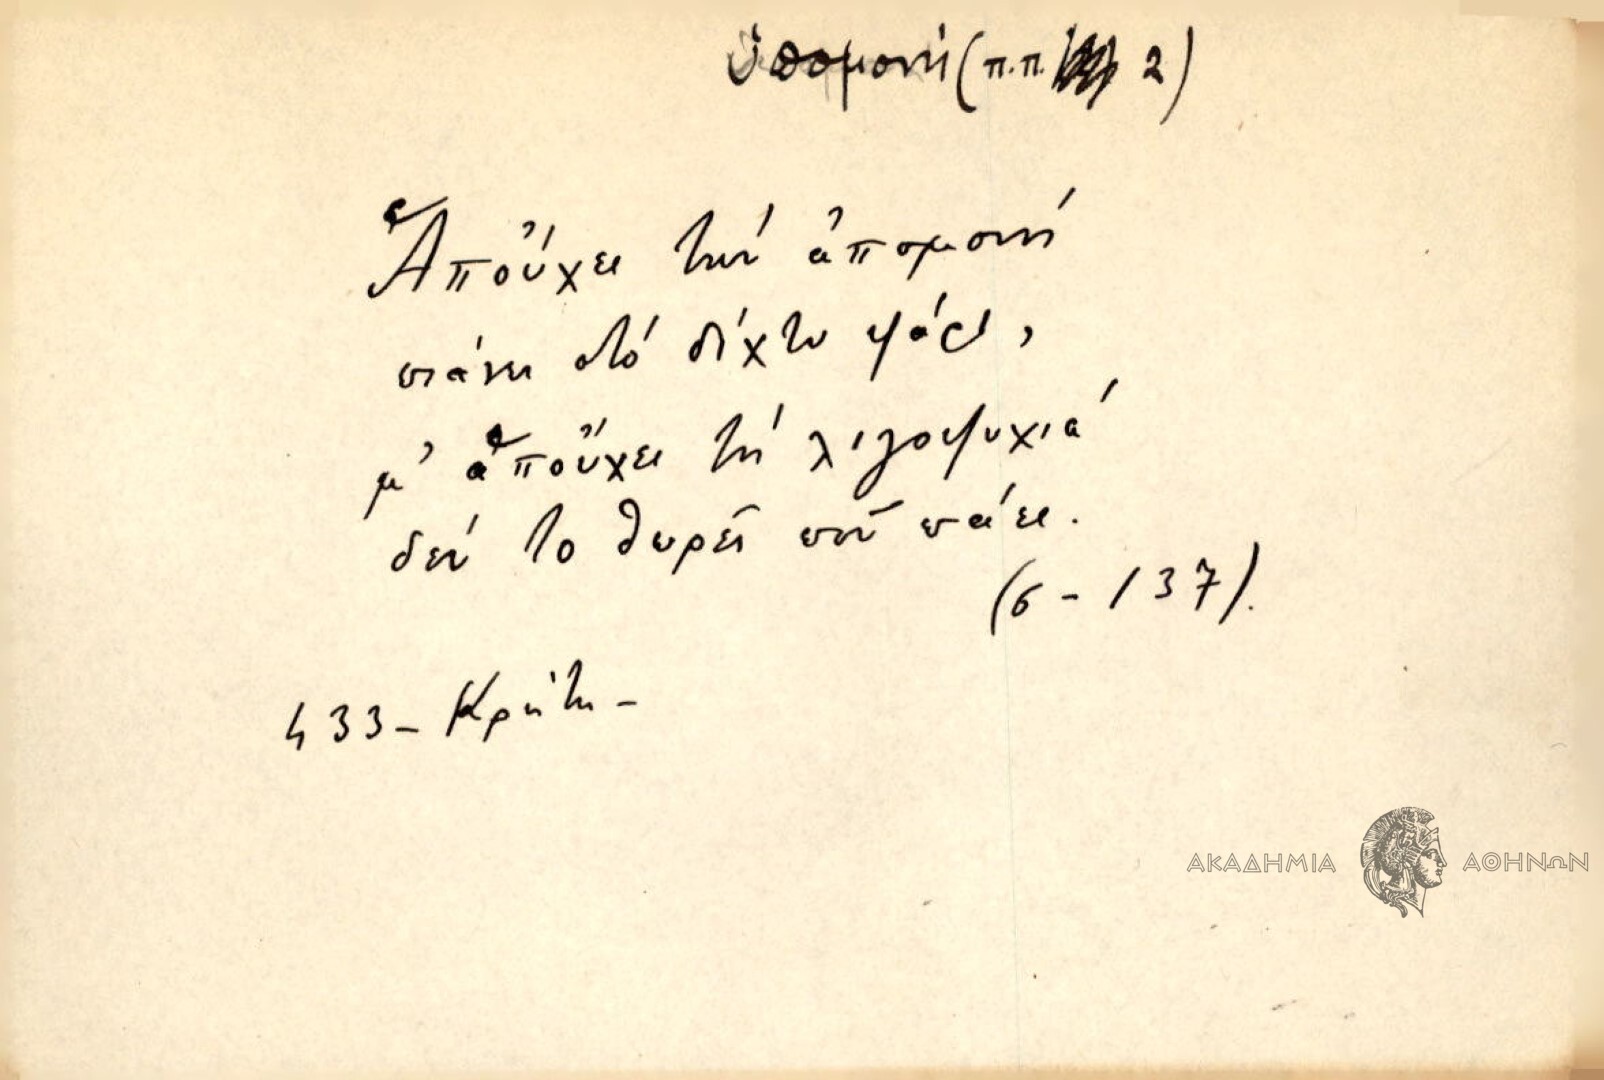 ὑπομονή (π.π. 2)
Ἁπού'χει τήν ἀπομονή
πιάνει στό δίχτυ ψάρι,
μ' ἁπού'χει τή λιγοψυχιά
δέν το θωρεῖ ποῦ πάει.
(σ - 137).
433 - Κρήτη -
ΑΚΑΔΗΜΙΑ ΑΘΗΝΩΝ